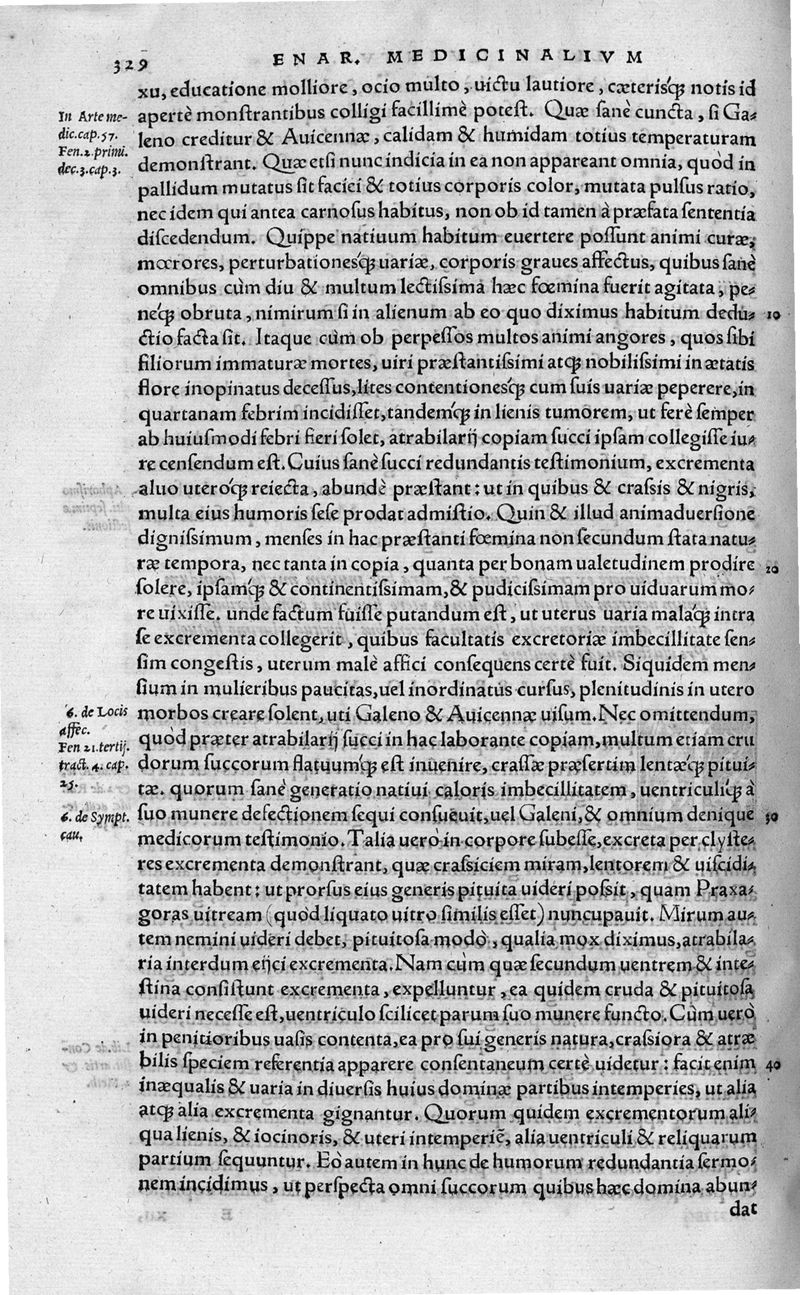 329 ENAR. MEDICINALIVM
xu, educatione molliore, ocio multo, uictu lautiore, cæterisq́; notis id
apertè monſtrantibus colligi facillimè poteſt. Quæ ſanè cuncta, ſi Ga-
leno creditur & Auicennæ, calidam & humidam totius temperaturam
demonſtrant. Quæ etſi nunc indicia in ea non appareant omnia, quòd in
pallidum mutatus ſit faciei & totius corporis color, mutata pulſus ratio,
nec idem qui antea carnoſus habitus, non ob id tamen à præfata ſententia
diſcedendum. Quippe natiuum habitum euertere poſſunt animi curæ,
mœrores, perturbationesq́; uariæ, corporis graues affectus, quibus ſanè
omnibus cùm diu & multum lectiſsima hæc fœmina fuerit agitata, pe-
neq́; obruta, nimirum ſi in alienum ab eo quo diximus habitum dedu- 10
ctio facta ſit. Itaque cùm ob perpeſſos multos animi angores, quos ſibi
filiorum immaturæ mortes, uiri præſtantiſsimi atq; nobiliſsimi in ætatis
flore inopinatus deceſſus, lites contentionesq́; cum ſuis uariæ peperere, in
quartanam febrim incidiſſet, tandemq́; in lienis tumorem, ut ferè ſemper
ab huiuſmodi febri fieri ſolet, atrabilarij copiam ſucci ipſam collegiſſe iu-
re cenſendum eſt. Cuius ſanè ſucci redundantis teſtimonium, excrementa
aluo uteroq́; reiecta, abundè præſtant: ut in quibus & craſsis & nigris,
multa eius humoris ſeſe prodat admiſtio. Quin & illud animaduerſione
digniſsimum, menſes in hac præſtanti fœmina non ſecundum ſtata natu-
ræ tempora, nec tanta in copia, quanta per bonam ualetudinem prodire 20
ſolere, ipſamq́; & continentiſsimam, & pudiciſsimam pro uiduarum mo-
re uixiſſe. unde factum fuiſſe putandum eſt, ut uterus uaria malaq́; intra
ſe excrementa collegerit, quibus facultatis excretoriæ imbecillitate ſen-
ſim congeſtis, uterum malè affici conſequens certè fuit. Siquidem men-
ſium in mulieribus paucitas, uel inordinatus curſus, plenitudinis in utero
morbos creare ſolent, uti Galeno & Auicennæ uiſum. Nec omittendum,
quòd præter atrabilarij ſucci in hac laborante copiam, multum etiam cru
dorum ſuccorum flatuumq́; eſt inuenire, craſſæ præſertim lentæq́; pitui-
tæ. quorum ſanè generatio natiui caloris imbecillitatem, uentriculiq́; à
ſuo munere defectionem ſequi conſueuit, uel Galeni, & omnium denique 30
medicorum teſtimonio. Talia uerò in corpore ſubeſſe, excreta per clyſte-
res excrementa demonſtrant, quæ craſsiciem miram, lentorem & uiſcidi-
tatem habent: ut prorſus eius generis pituita uideri poſsit, quam Praxa-
goras uitream (quòd liquato uitro ſimilis eſſet) nuncupauit. Mirum au-
tem nemini uideri debet, pituitoſa modò, qualia mox diximus, atrabila-
ria interdum eijci excrementa. Nam cùm quæ ſecundum uentrem & inte-
ſtina conſiſtunt excrementa, expelluntur, ea quidem cruda & pituitoſa
uideri neceſſe eſt, uentriculo ſcilicet parum ſuo munere functo. Cùm uerò
in penitioribus uaſis contenta, ea pro ſui generis natura, craſsiora & atræ
bilis ſpeciem referentia apparere conſentaneum certè uidetur: facit enim 40
inæqualis & uaria in diuerſis huius dominæ partibus intemperies, ut alia
atq; alia excrementa gignantur. Quorum quidem excrementorum ali-
qua lienis, & iocinoris, & uteri intemperiẽ, alia uentriculi & reliquarum
partium ſequuntur. Eò autem in hunc de humorum redundantia ſermo-
nem incidimus, ut perſpecta omni ſuccorum quibus hæc domina abun-
dat
In Arte me-
dic. cap. 57.
Fen. 2. primi.
doc. 3. cap. 3.
6. de Locis
affec.
Fen 21. tertij.
tract. 4. cap.
25.
6. de Sympt.
cau.